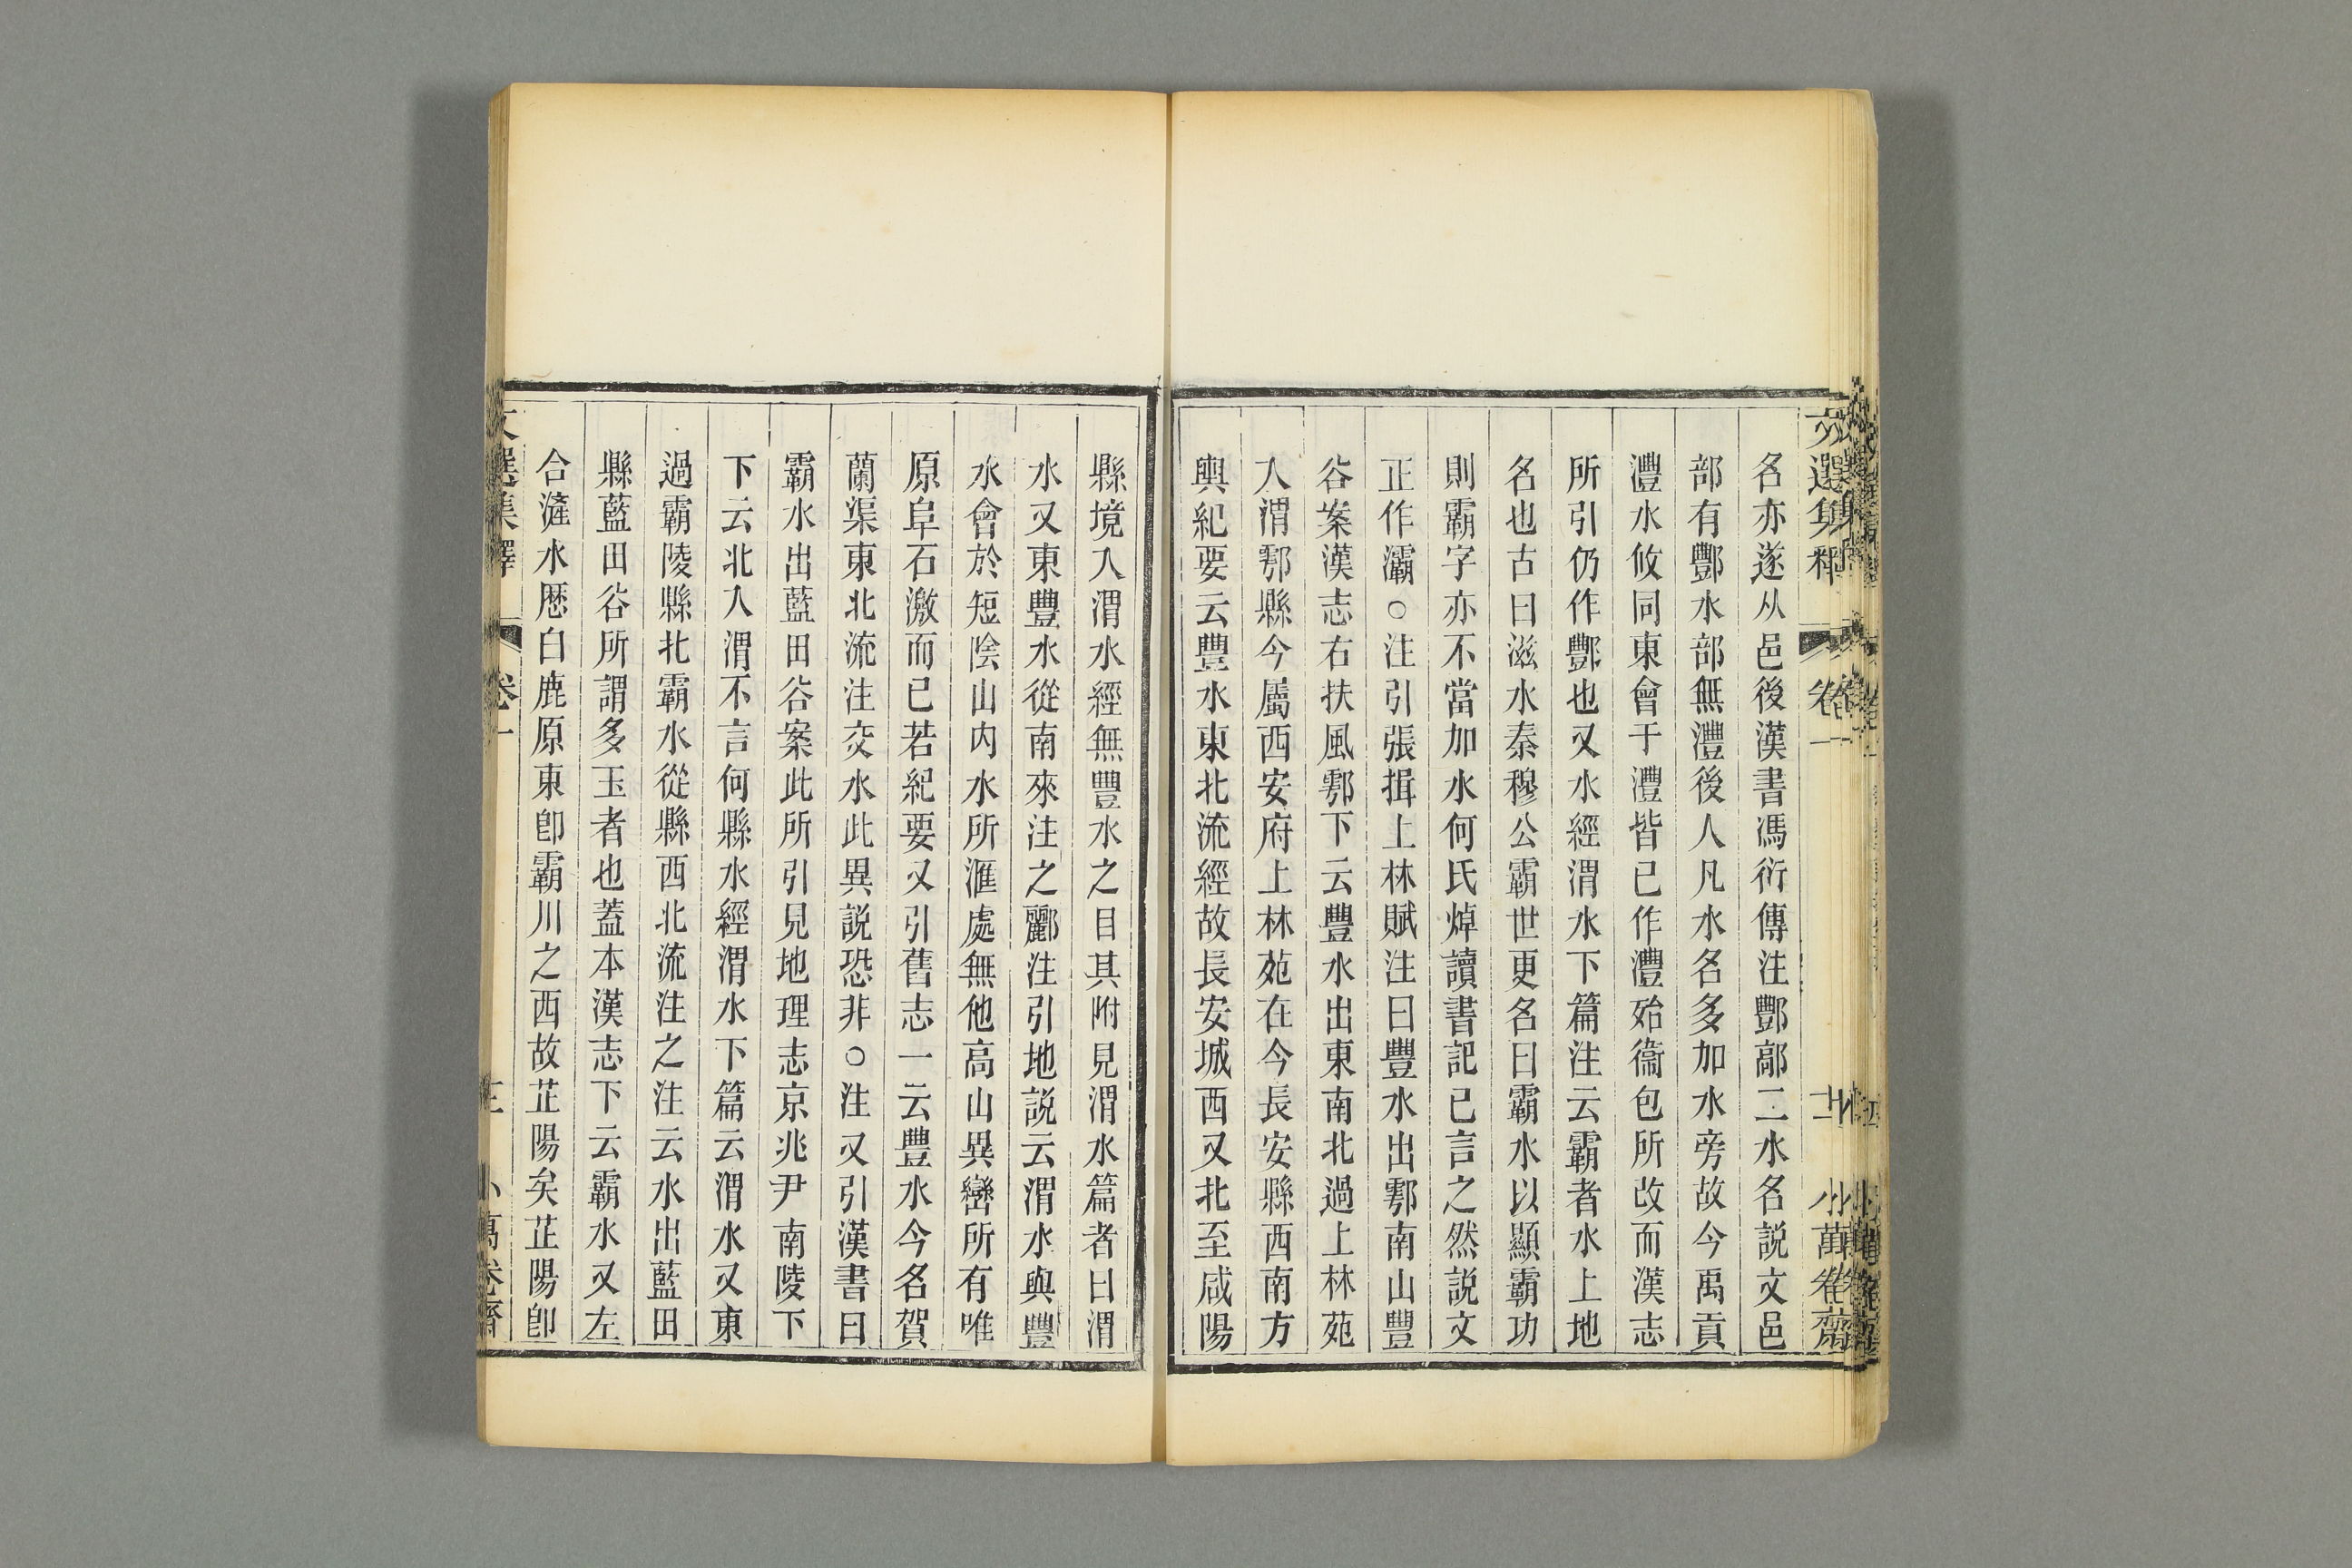 名亦遂从邑後漢書馮衍傳注酆鄗二水名説文邑
部有酆水部無灃後人凡水名多加水旁故今禹貢
灃水攸同東會于灃皆已作灃殆衞包所改而漢志
所引仍作酆也又水經渭水下篇注云霸者水上地
名也古曰滋水秦穆公霸世更名曰霸水以顯霸功
則霸字亦不當加水何氏焯讀書記已言之然説文
正作灞○注引張揖上林賦注曰豐水出鄠南山豐
谷案漢志右扶風鄠下云豐水出東南北過上林苑
入渭鄠縣今屬西安府上林苑在今長安縣西南方
輿紀要云豐水東北流經故長安城西又北至咸陽
縣境入渭水經無豐水之目其附見渭水篇者曰渭
水又東豐水從南來注之酈注引地説云渭水與豐
水會於短陰山内水所滙處無他高山異巒所有唯
原阜石激而已若紀要又引舊志一云豐水今名賀
蘭渠東北流注交水此異説恐非○注又引漢書曰
霸水出藍田谷案此所引見地理志京兆尹南陵下
下云北入渭不言何縣水經渭水下篇云渭水又東
過霸陵縣北霸水從縣西北流注之注云水出藍田
縣藍田谷所謂多玉者也蓋本漢志下云霸水又左
合滻水歷白鹿原東卽霸川之西故芷陽矣芷陽卽
文選集釋 卷一 小萬卷齋